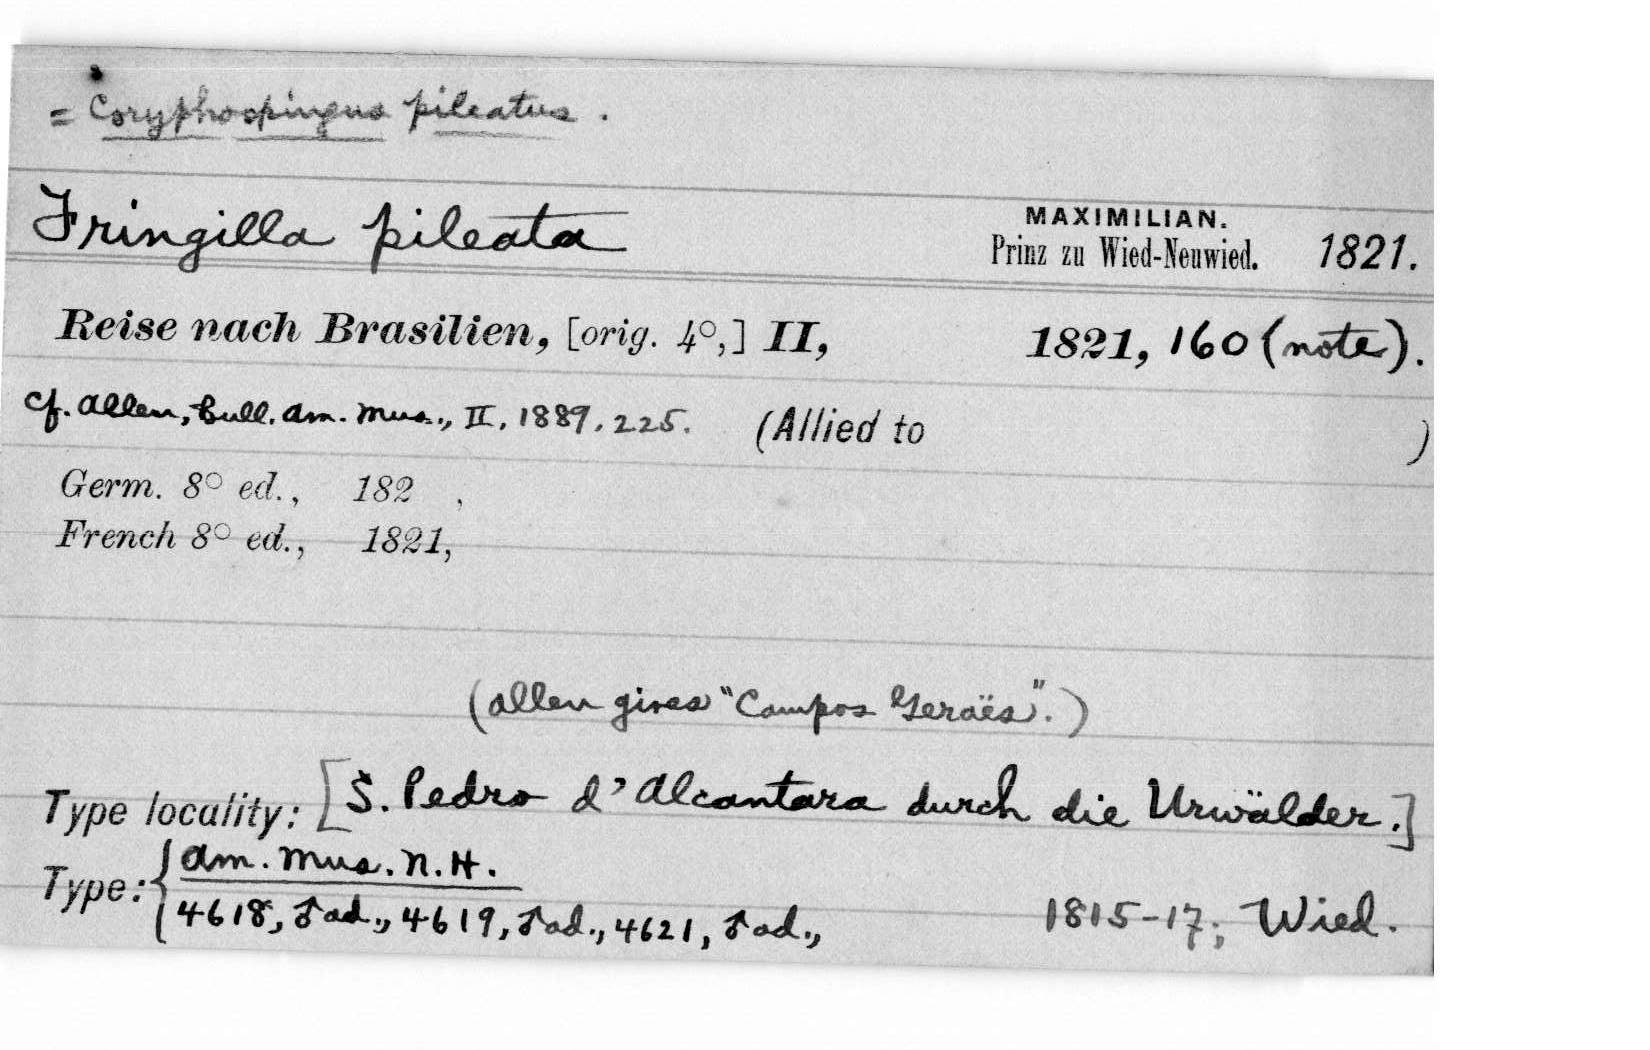 = Coryphospingus pileatus.
Fringilla pileata
MAXIMILIAN.
Prinz zu Wied-Neuwied. 1821.
Reise nach Brasilien, [orig. 4°,] II, 1821, 160 (note).
cf. Allen, Bull. Am. Mus., II, 1889, 225. (Allied to )
Germ. 8° ed., 182 ,
French 8° ed., 1821,
(Allen gives "Campos Geraës".)
Type locality: [S. Pedro d'Alcantara durch die Urwälder.]
Type: { Am. Mus. N. H.
4618, ♂ ad., 4619, ♂ ad., 4621, ♂ ad., 1815-17; Wied.